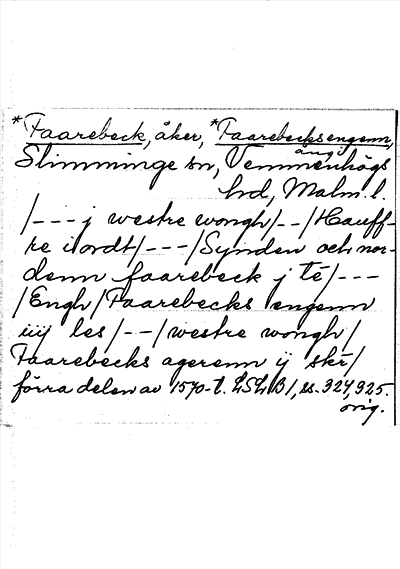 *Faarebeck, åker, *Faarebecks engenn,
äng i
Slimminge sn, Vemmenhögs
hd, Malm. l.
/---j westre wongh/--/Hauff-
re iordt/---/Synden och nor-
denn faarebeck j té/---
/Engh/Faarebecks engenn
iiij les/--/westre wongh/
Faarebecks agerenn ij skr/
förra delen av 1570-t. LSLB1, ss. 324, 325.
orig.